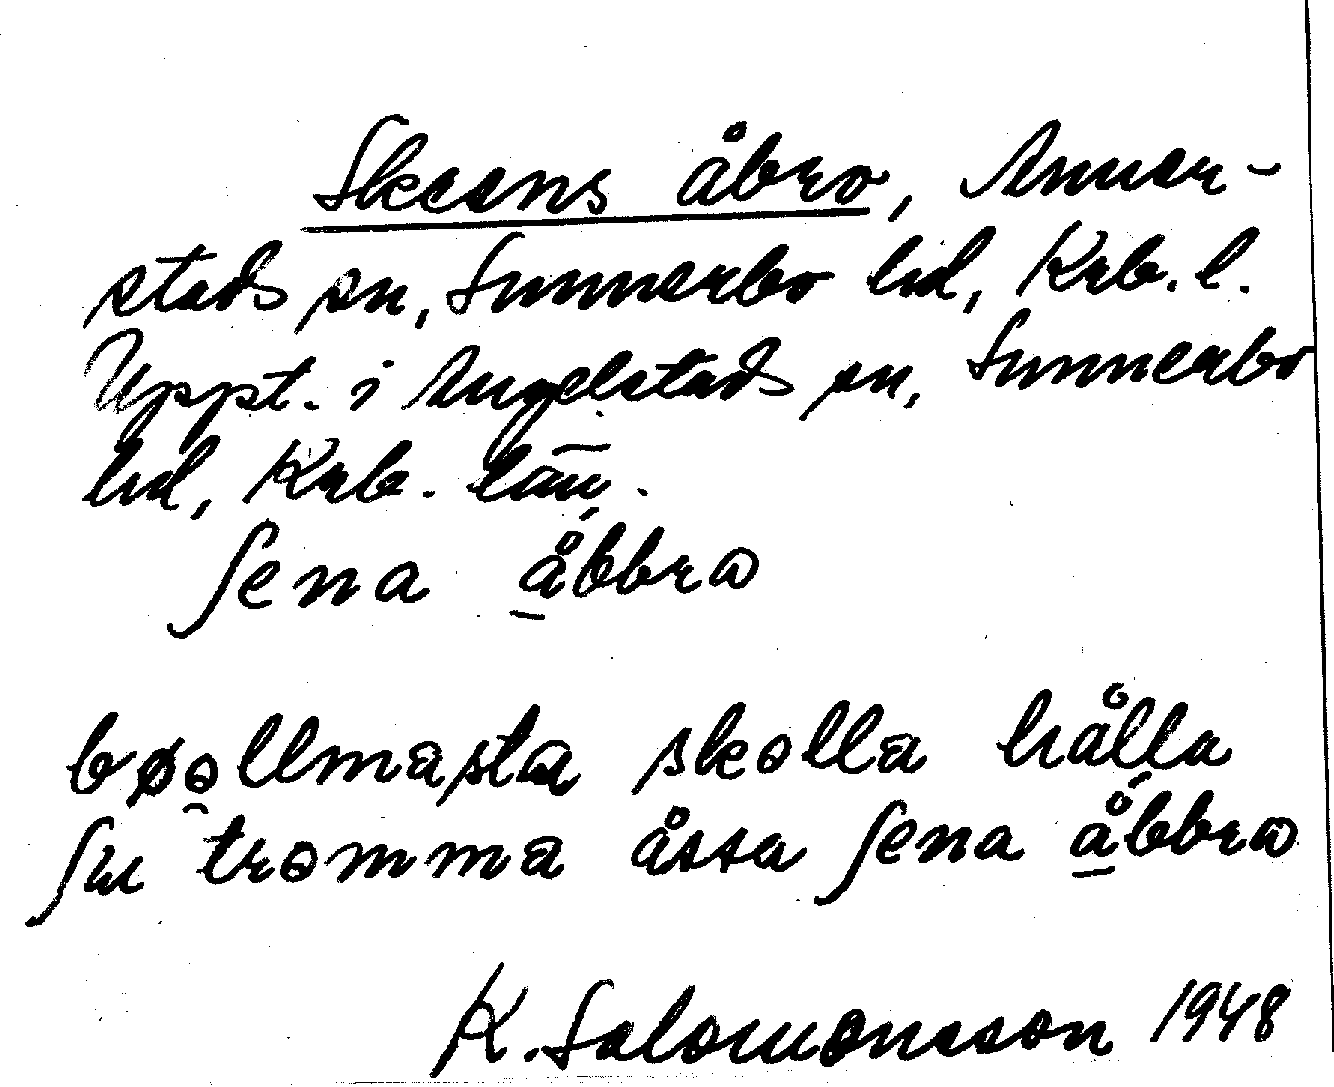 Skeens åbro, Anner-
stads sn, Sunnerbo hd, Krb. l.
Uppt. i Angelstads sn, Sunnerbo
hd, Krb. län.
ʃena åbbrω
bøəllmasta skolla hålla
ʃu tromma åssa ʃena åbbrω
K. Salomonsson 1948